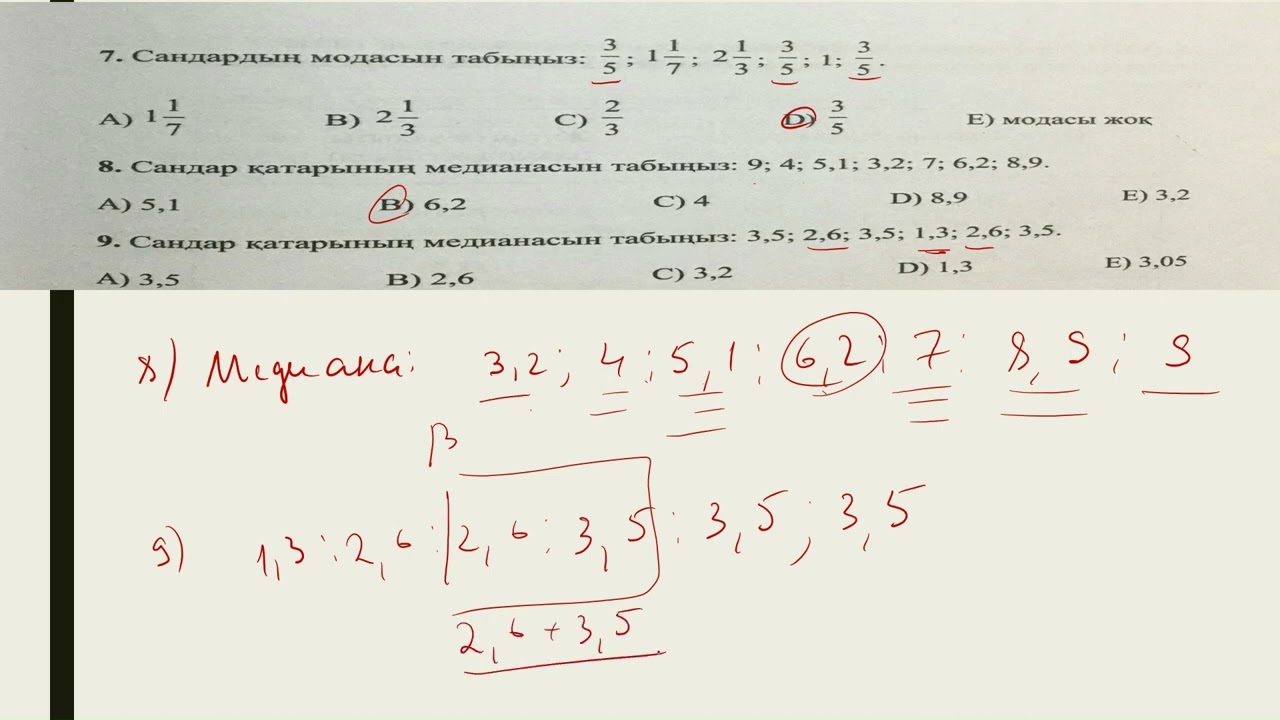 7. Сандардың модасын табыңыз: 3/5; 1 1/7; 2 1/3; 3/5; 1; 3/5.
A) 1 1/7 B) 2 1/3 C) 2/3 D) 3/5 E) модасы жоқ
8. Сандар қатарының медианасын табыңыз: 9; 4; 5,1; 3,2; 7; 6,2; 8,9.
A) 5,1 B) 6,2 C) 4 D) 8,9 E) 3,2
9. Сандар қатарының медианасын табыңыз: 3,5; 2,6; 3,5; 1,3; 2,6; 3,5.
A) 3,5 B) 2,6 C) 3,2 D) 1,3 E) 3,05
8) Медиана: 3,2; 4; 5,1; 6,2; 7; 8,9; 9
β
9) 1,3; 2,6; 2,6; 3,5; 3,5; 3,5
2,6 + 3,5